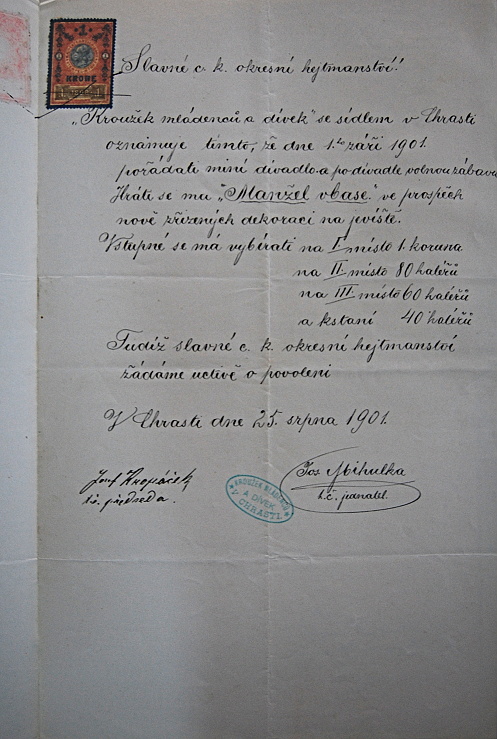 1
KRONE
Slavné c. k. okresní hejtmanství!
„Kroužek mládenců a dívek“ se sídlem v Chrasti
oznámuje tímto, že dne 1.ho září 1901.
pořádati míní divadlo a po divadle volnou zábavu
Hráti se má „Manžel v base.“ ve prospěch
nově zřízených dekorací na jeviště.
Vstupné se má vybírati na I. místo 1. koruna
na II. místo 80 haléřů
na III. místo 60 haléřů
a k stání 40 haléřů
Tudíž slavné c. k. okresní hejtmanství
žádáme uctivě o povolení
V Chrasti dne 25. srpna 1901.
Josef Kropáček
t.č. předseda.
KROUŽEK MLÁDENCŮ
A DÍVEK
V CHRASTI
Jos. Mihulka
t.č. jednatel.